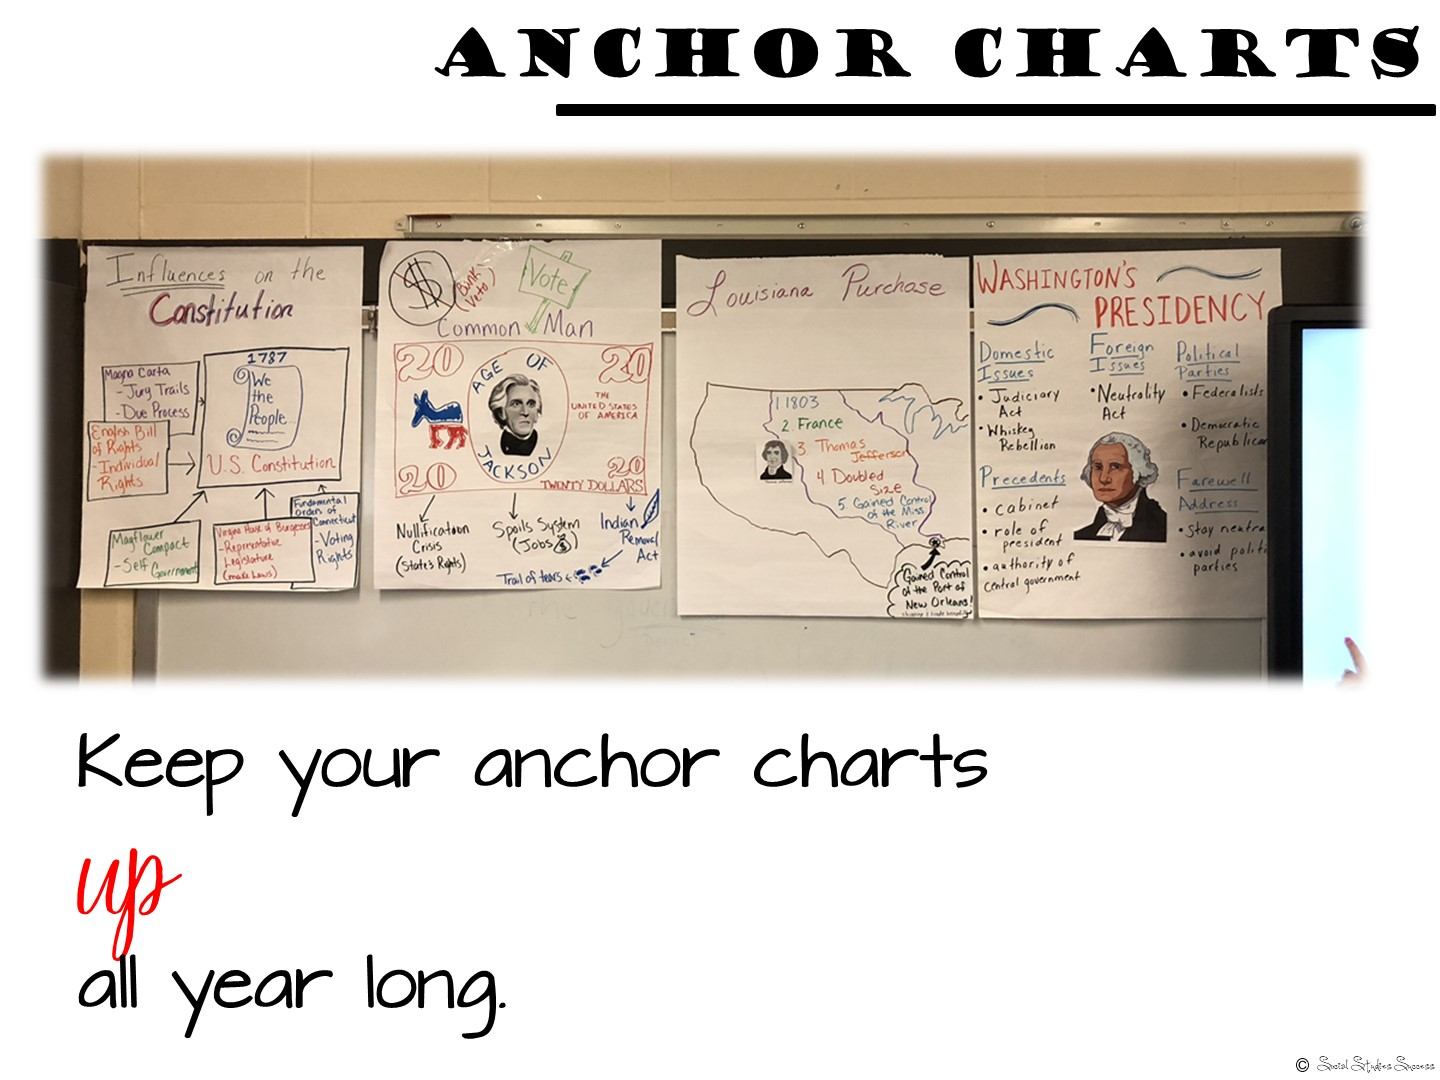 ANCHOR CHARTS
Influences on the
Constitution
Magna Carta
-Jury Trails
-Due Process
English Bill
of Rights
-Individual
Rights
1787
We
the
People
U.S. Constitution
Mayflower
Compact
-Self
Government
Virginia House of Burgesses
-Representative
Legislature
(make Laws)
Fundamental
orders of
Connecticut
-Voting
Rights
$
(Bank
Veto)
Vote
Common Man
20
20
AGE OF
JACKSON
THE
UNITED STATES
OF AMERICA
20
20
TWENTY DOLLARS
Nullification
Crisis
(State's Rights)
Spoils System
(Jobs $)
Indian
Removal
Act
Trail of tears
Louisiana Purchase
1 1803
2. France
3. Thomas
Jefferson
4. Doubled
Size
5. Gained Control
of the Miss.
River
Gained Control
of the Port of
New Orleans!
WASHINGTON'S
PRESIDENCY
Domestic
Issues
• Judiciary
Act
• Whiskey
Rebellion
Precedents
• cabinet
• role of
president
• authority of
central government
Foreign
Issues
• Neutrality
Act
Political
Parties
• Federalists
• Democratic
Republican
Farewell
Address
• stay neutra
• avoid politi
parties
Keep your anchor charts
up
all year long.
© Social Studies Success